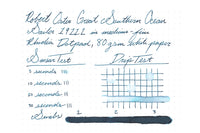 Robert Oster Great Southern Ocean
Sailor 1911L in medium-fine
Rhodia Dotpad, 80 gram white paper
Smear Test Drip Test
5 seconds
10 seconds
Swabs 1 2 3